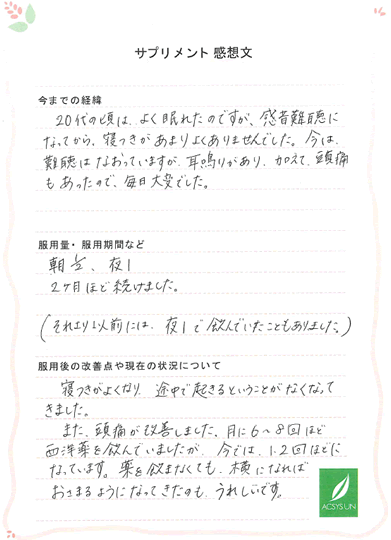 サプリメント 感想文
今までの経緯
20代の頃は、よく眠れたのですが、感音難聴に
なってから、寝つきがあまりよくありませんでした。今は、
難聴はなおっていますが、耳鳴りがあり、加えて、頭痛
もあったので、毎日大変でした。
服用量・服用期間など
朝 、夜1
2ヶ月ほど続けました。
(それより以前には、夜1で飲んでいたこともありました。)
服用後の改善点や現在の状況について
寝つきがよくなり、途中で起きるということがなくなって
きました。
また、頭痛が改善しました。月に6~8回ほど
西洋薬を飲んでいましたが、今では、1.2回ほどに
なっています。薬を飲まなくても、横になれば
おさまるようになってきたのも、うれしいです。
ACSYSLIN